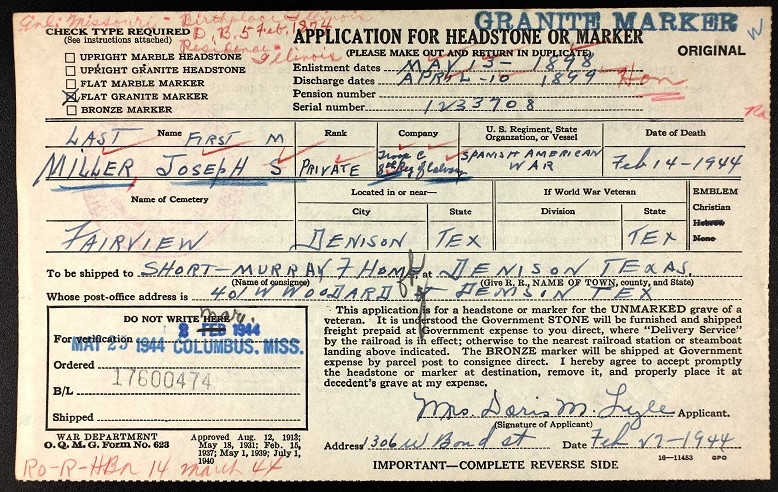 Enl: Missouri - Birthplace - Illinois
D.B. 5 Feb. 1874
Residence - Illinois
GRANITE MARKER
CHECK TYPE REQUIRED
(See instructions attached)
UPRIGHT MARBLE HEADSTONE
UPRIGHT GRANITE HEADSTONE
FLAT MARBLE MARKER
FLAT GRANITE MARKER
BRONZE MARKER
APPLICATION FOR HEADSTONE OR MARKER
(PLEASE MAKE OUT AND RETURN IN DUPLICATE)
ORIGINAL
Enlistment dates MAY 13 - 1898
Discharge dates APRIL-10 1899 Hon
Pension number
Serial number 1233708
LAST Name FIRST M
Rank
Company
U. S. Regiment, State Organization, or Vessel
Date of Death
MILLER, JOSEPH S
PRIVATE
Troop C
8th Reg of Calvary
SPANISH AMERICAN WAR
Feb 14-1944
Name of Cemetery
Located in or near—
City
State
If World War Veteran
Division
State
EMBLEM
Christian
Hebrew
None
FAIRVIEW
DENISON
TEX
TEX
To be shipped to SHORT-MURRAY F HOME at DENISON TEXAS.
(Name of consignee)
(Give R. R., NAME OF TOWN, county, and State)
Whose post-office address is 401 W WOODARD St DENISON TEX
DO NOT WRITE HERE
Mar.
2 FEB 1944
For verification
MAY 25 1944 COLUMBUS, MISS.
Ordered
17600474
B/L
Shipped
This application is for a headstone or marker for the UNMARKED grave of a
veteran. It is understood the Government STONE will be furnished and shipped
freight prepaid at Government expense to you direct, where "Delivery Service"
by the railroad is in effect; otherwise to the nearest railroad station or steamboat
landing above indicated. The BRONZE marker will be shipped at Government
expense by parcel post to consignee direct. I hereby agree to accept promptly
the headstone or marker at destination, remove it, and properly place it at
decedent's grave at my expense.
Mrs. Doris M. Lyle Applicant.
(Signature of Applicant)
Address 1306 W Bond st Date Feb 27-1944
WAR DEPARTMENT
O. Q. M. G. Form No. 623
Approved Aug. 12, 1913;
May 18, 1931; Feb. 15,
1937; May 1, 1939; July 1,
1940
16—11453 GPO
IMPORTANT—COMPLETE REVERSE SIDE
Ro-R-HBn 14 March 44